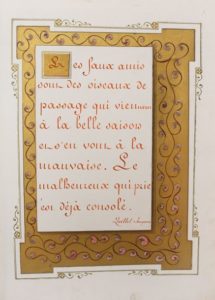 Les faux amis
sont des oiseaux de
passage qui viennent
à la belle saison
et s'en vont à la
mauvaise. Le
malheureux qui prie
est déjà consolé.